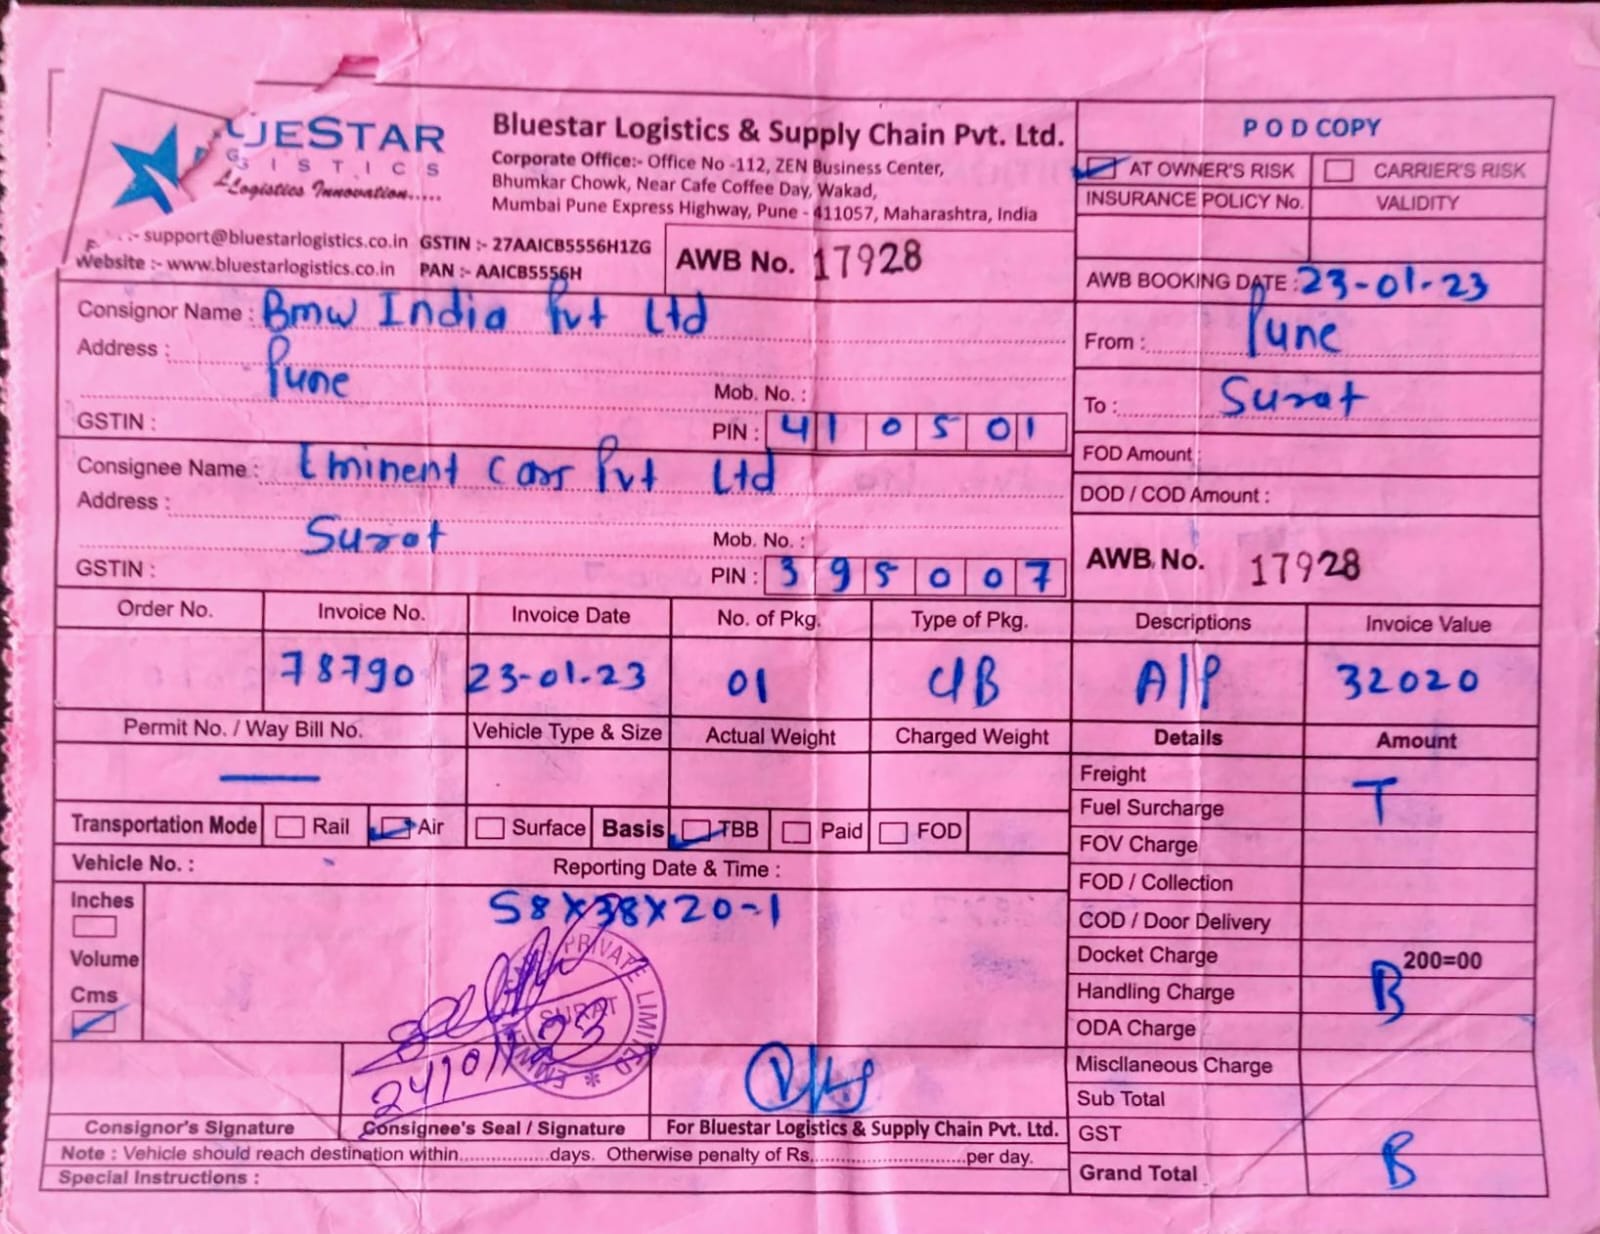 UESTAR
GISTICS
Logistics Innovation.....
support@bluestarlogistics.co.in GSTIN :- 27AAICB5556H1ZG
Website :- www.bluestarlogistics.co.in PAN :- AAICB5556H
Bluestar Logistics & Supply Chain Pvt. Ltd.
Corporate Office:- Office No -112, ZEN Business Center,
Bhumkar Chowk, Near Cafe Coffee Day, Wakad,
Mumbai Pune Express Highway, Pune - 411057, Maharashtra, India
AWB No. 17928
POD COPY
AT OWNER'S RISK CARRIER'S RISK
INSURANCE POLICY No. VALIDITY
AWB BOOKING DATE : 23-01-23
From : Pune
To : Surat
FOD Amount :
DOD / COD Amount :
AWB No. 17928
Consignor Name : Bmw India Pvt Ltd
Address :
Pune
Mob. No. :
GSTIN : PIN : 410501
Consignee Name : Eminent Cars Pvt Ltd
Address :
Surat
Mob. No. :
GSTIN : PIN : 395007
Order No. Invoice No. Invoice Date No. of Pkg. Type of Pkg. Descriptions Invoice Value
78790 23-01-23 01 C/B A/P 32020
Permit No. / Way Bill No. Vehicle Type & Size Actual Weight Charged Weight Details Amount
Transportation Mode Rail Air Surface Basis TBB Paid FOD
Vehicle No. : Reporting Date & Time :
Inches
Volume
Cms
58X38X20-1
PRIVATE LIMITED
SURAT
EMINENT
24/01/23
Freight
T
Fuel Surcharge
FOV Charge
FOD / Collection
COD / Door Delivery
Docket Charge 200=00
Handling Charge B
ODA Charge
Miscllaneous Charge
Sub Total
GST
Grand Total B
Consignor's Signature Consignee's Seal / Signature For Bluestar Logistics & Supply Chain Pvt. Ltd.
Note : Vehicle should reach destination within................days. Otherwise penalty of Rs............................per day.
Special Instructions :